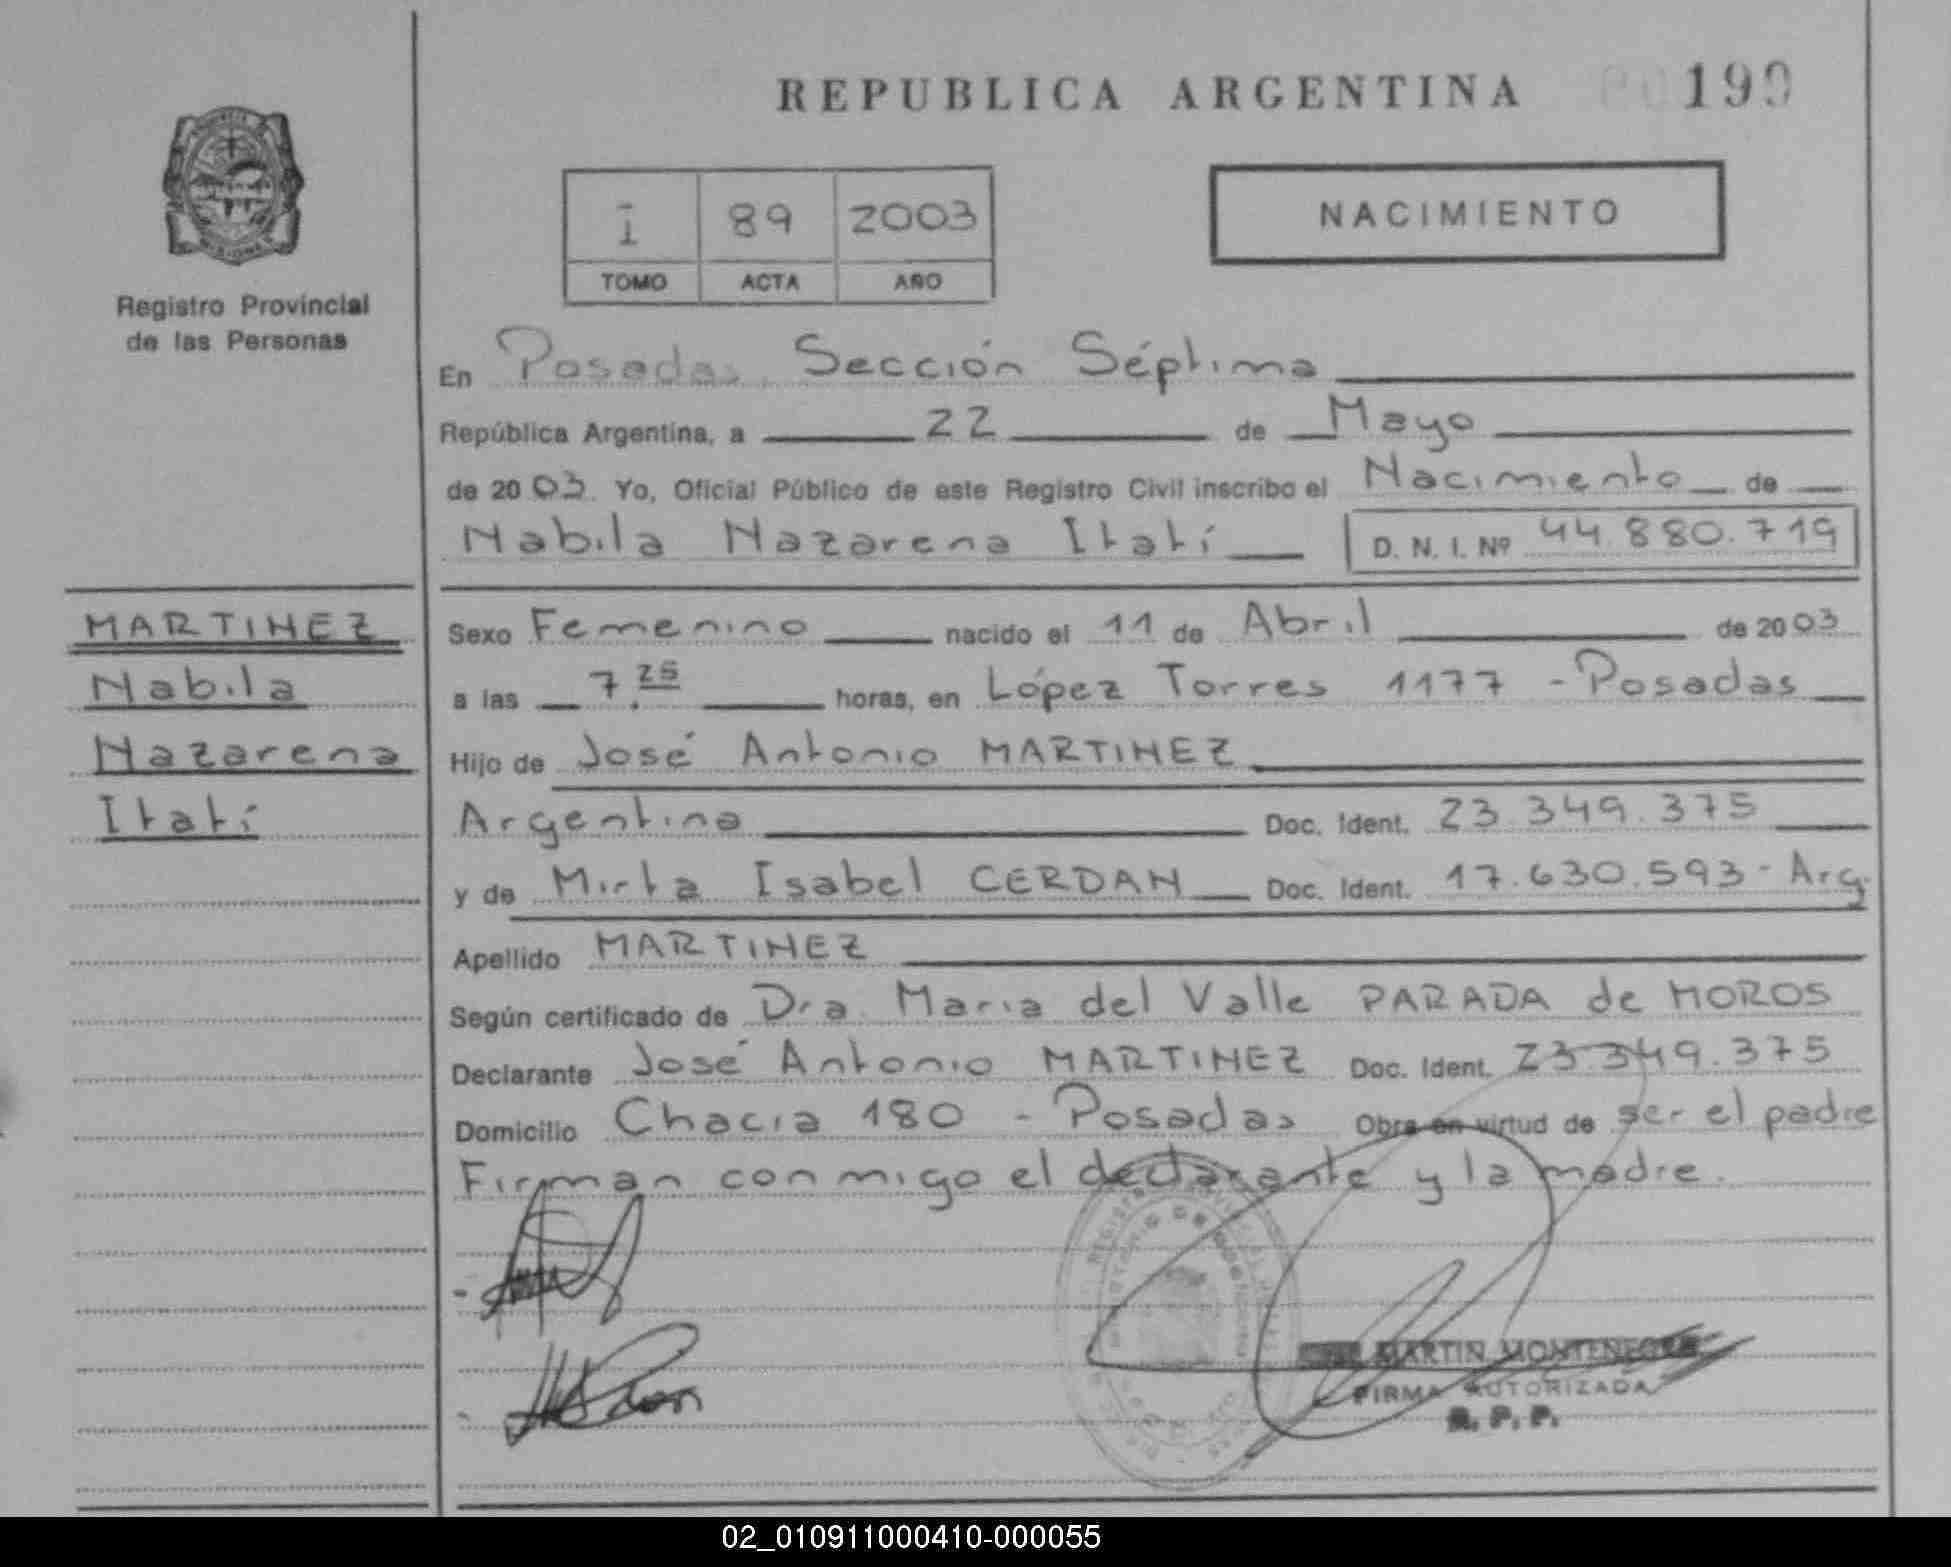 REPUBLICA ARGENTINA
199
I 89 2003
TOMO ACTA AÑO
NACIMIENTO
Registro Provincial
de las Personas
En Posadas, Sección Séptima
República Argentina, a 22 de Mayo
de 2003. Yo, Oficial Público de este Registro Civil inscribo el Nacimiento de
Nabila Nazarena Itatí D. N. I. Nº 44.880.719
MARTINEZ
Nabila
Nazarena
Itatí
Sexo Femenino nacido el 11 de Abril de 2003
a las 7.25 horas, en López Torres 1177 - Posadas
Hijo de José Antonio MARTINEZ
Argentina Doc. Ident. 23.349.375
y de Mirta Isabel CERDAN Doc. Ident. 17.630.593 - Arg.
Apellido MARTINEZ
Según certificado de Dra. María del Valle PARADA de MOROS
Declarante José Antonio MARTINEZ Doc. Ident. 23.349.375
Domicilio Chacra 180 - Posadas Obra en virtud de ser el padre
Firman conmigo el declarante y la madre.
MARTIN MONTENEGRO
FIRMA AUTORIZADA
R. P. P.
02_010911000410-000055